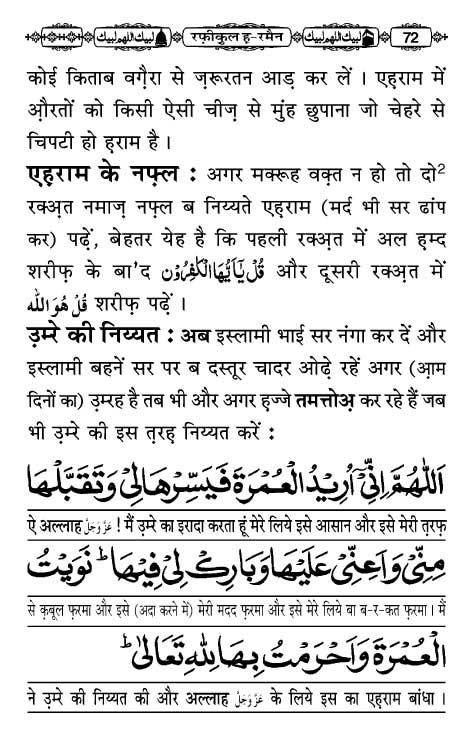 لبیك اللھم لبیك रफ़ीकुल ह-रमैन لبیك اللھم لبیك 72
कोई किताब वग़ैरा से ज़रूरतन आड़ कर लें । एहराम में
औ़रतों को किसी ऐसी चीज़ से मुंह छुपाना जो चेहरे से
चिपटी हो ह़राम है ।
एहराम के नफ़्ल : अगर मक्रूह वक़्त न हो तो दो2
रक्अ़त नमाज़ नफ़्ल ब निय्यते एहराम (मर्द भी सर ढांप
कर) पढ़ें, बेहतर येह है कि पहली रक्अ़त में अल ह़म्द
शरीफ़ के बा'द قُلْ یٰۤاَیُّهَا الْكٰفِرُوْنَ और दूसरी रक्अ़त में
قُلْ هُوَ اللّٰهُ शरीफ़ पढ़ें ।
उ़म्रे की निय्यत : अब इस्लामी भाई सर नंगा कर दें और
इस्लामी बहनें सर पर ब दस्तूर चादर ओढ़े रहें अगर (आ़म
दिनों का) उ़म्रह है तब भी और अगर ह़ज्जे तमत्तोअ़ कर रहे हैं जब
भी उ़म्रे की इस त़रह़ निय्यत करें :
اَللّٰهُمَّ اِنِّیْۤ اُرِیْدُ الْعُمْرَةَ فَیَسِّرْهَا لِیْ وَتَقَبَّلْهَا
ऐ अल्लाह عَزَّوَجَلَّ ! मैं उ़म्रे का इरादा करता हूं मेरे लिये इसे आसान और इसे मेरी त़रफ़
مِنِّیْ وَاَعِنِّیْ عَلَیْهَا وَبَارِكْ لِیْ فِیْهَا ؕ نَوَیْتُ
से क़बूल फ़रमा और इसे (अदा करने में) मेरी मदद फ़रमा और इसे मेरे लिये बा ब-र-कत फ़रमा । मैं
الْعُمْرَةَ وَاَحْرَمْتُ بِهَا لِلّٰهِ تَعَالٰی ؕ
ने उ़म्रे की निय्यत की और अल्लाह عَزَّوَجَلَّ के लिये इस का एहराम बांधा ।